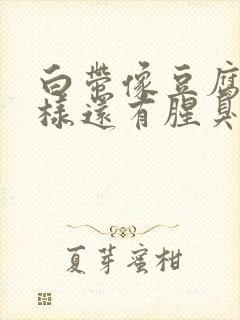 白帶像豆腐
樣還有腥臭
夏芽蜜柑